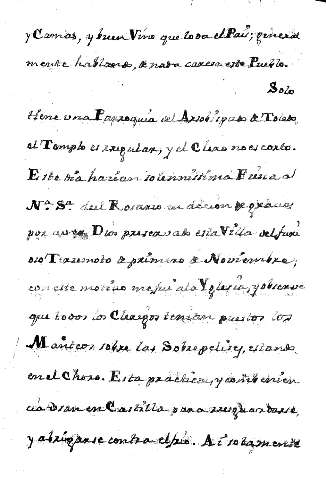 y Camas, y buen Vino que toda el Pais; general
mente hablando, de nada carece este Pueblo.
Solo
tiene una Parroquia del Arzobispado de Toledo,
el Templo es regular, y el Clero no es corto.
Este dia hacian solemnissima Fiesta al
Nª. Sª. del Rosario en accion de gracias
por aver Dios preservado esta Villa del furi
oso Terremoto de primero de Noviembre;
con este motivo me fui a la Yglesia, y observe
que todos los Clerigos tenian puestos los
Manteos sobre las Sobrepellizes, estando
en el Choro. Esta practica, y
cia usan en Castilla para resguardarse,
y abrigarse contra el frio. Asi solamente